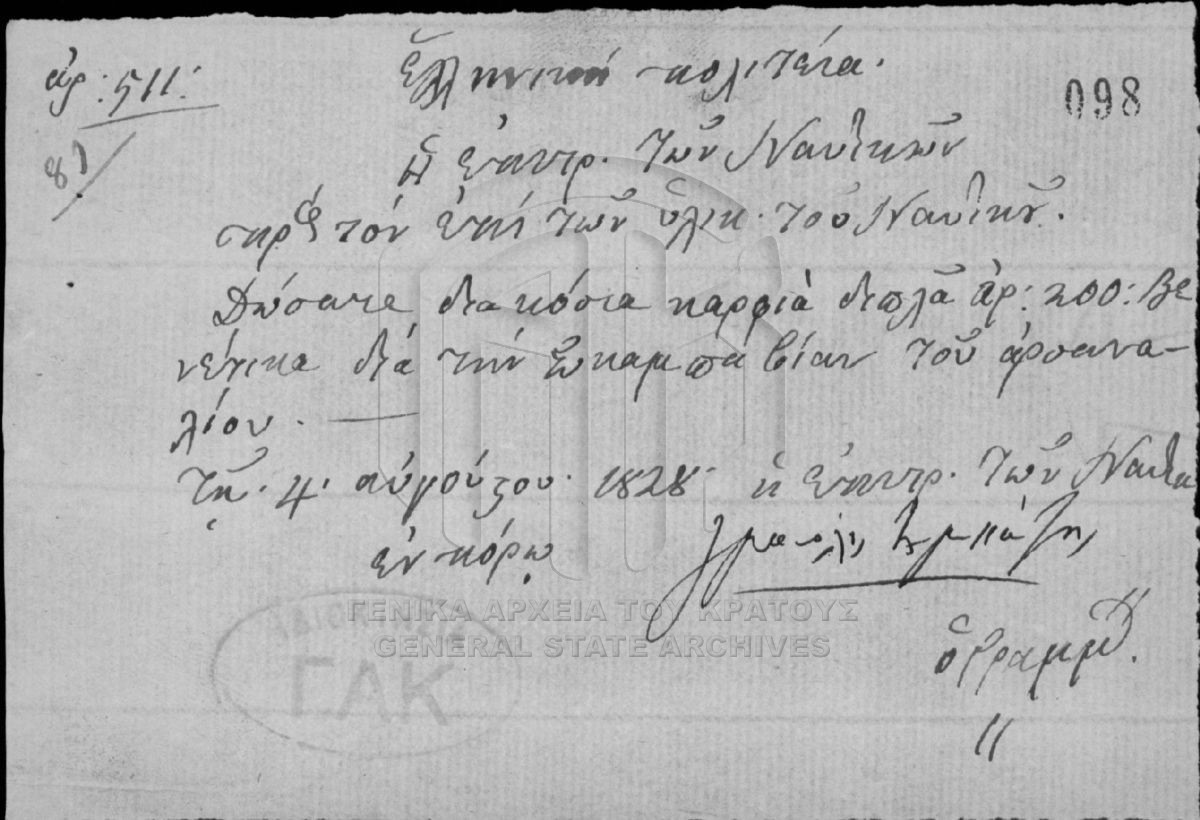 ἀρ: 511:
Ἑλληνική πολιτεία.
098
8)
ἡ ἐπιτρ. τῶν Ναυτικῶν
πρὸς τόν ἐπί τῶν ὑλικ. τοῦ Ναυτικοῦ.
Δώσατε διακόσια καρφιὰ διπλᾶ ἀρ: 200: βε
νέτικα διά τήν σκαμπαβίαν τοῦ ἀρσανα-
λίου. —
τῇ. 4. αὐγούστου. 1828. ἡ ἐπιτρ. τῶν Ναυτικ
ἐν πόρῳ
ὁ Γραμμ.
ΓΕΝΙΚΑ ΑΡΧΕΙΑ ΤΟΥ ΚΡΑΤΟΥΣ
GENERAL STATE ARCHIVES
ΓΑΚ